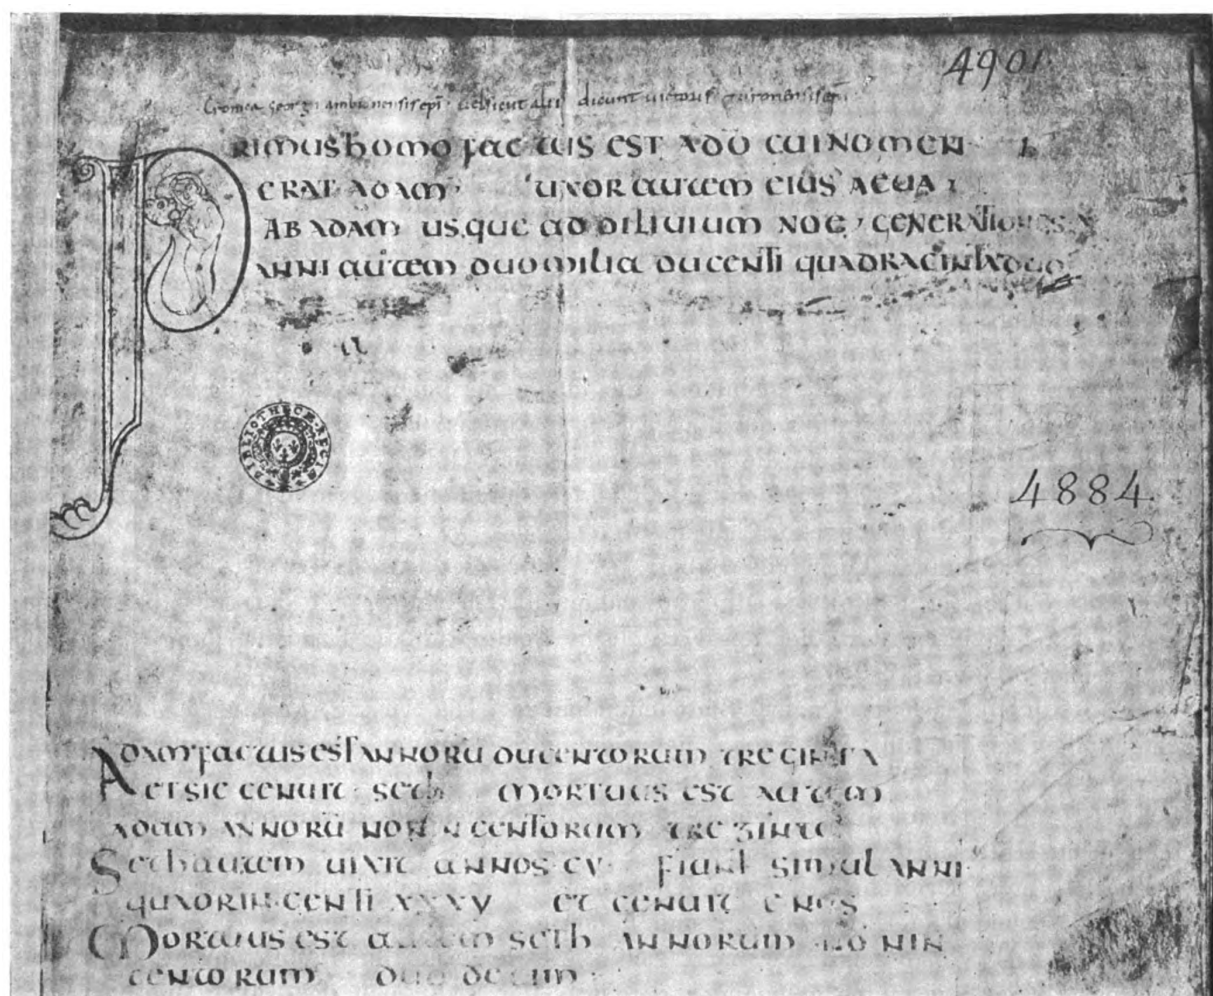 4901
Cronica georgii ambianensis epi vel sicut alii dicunt victoris turonensis epi
PRIMUS homo factus est ado cui nomen
erat adam. uxor autem eius aeua
ab adam usque ad diluuium noe, generationes x
anni autem duo milia ducenti quadraginta duo
BIBLIOTHECÆ REGIÆ
4884
Adam factus est annorū ducentorum treginta
et sic genuit seth mortuus est autem
adam annorū nongentorum treginta
Seth autem uixit annos cv. fiunt simul anni
quadringenti xxxv et genuit enos
Mortuus est autem seth annorum nonin
gentorum duodecim